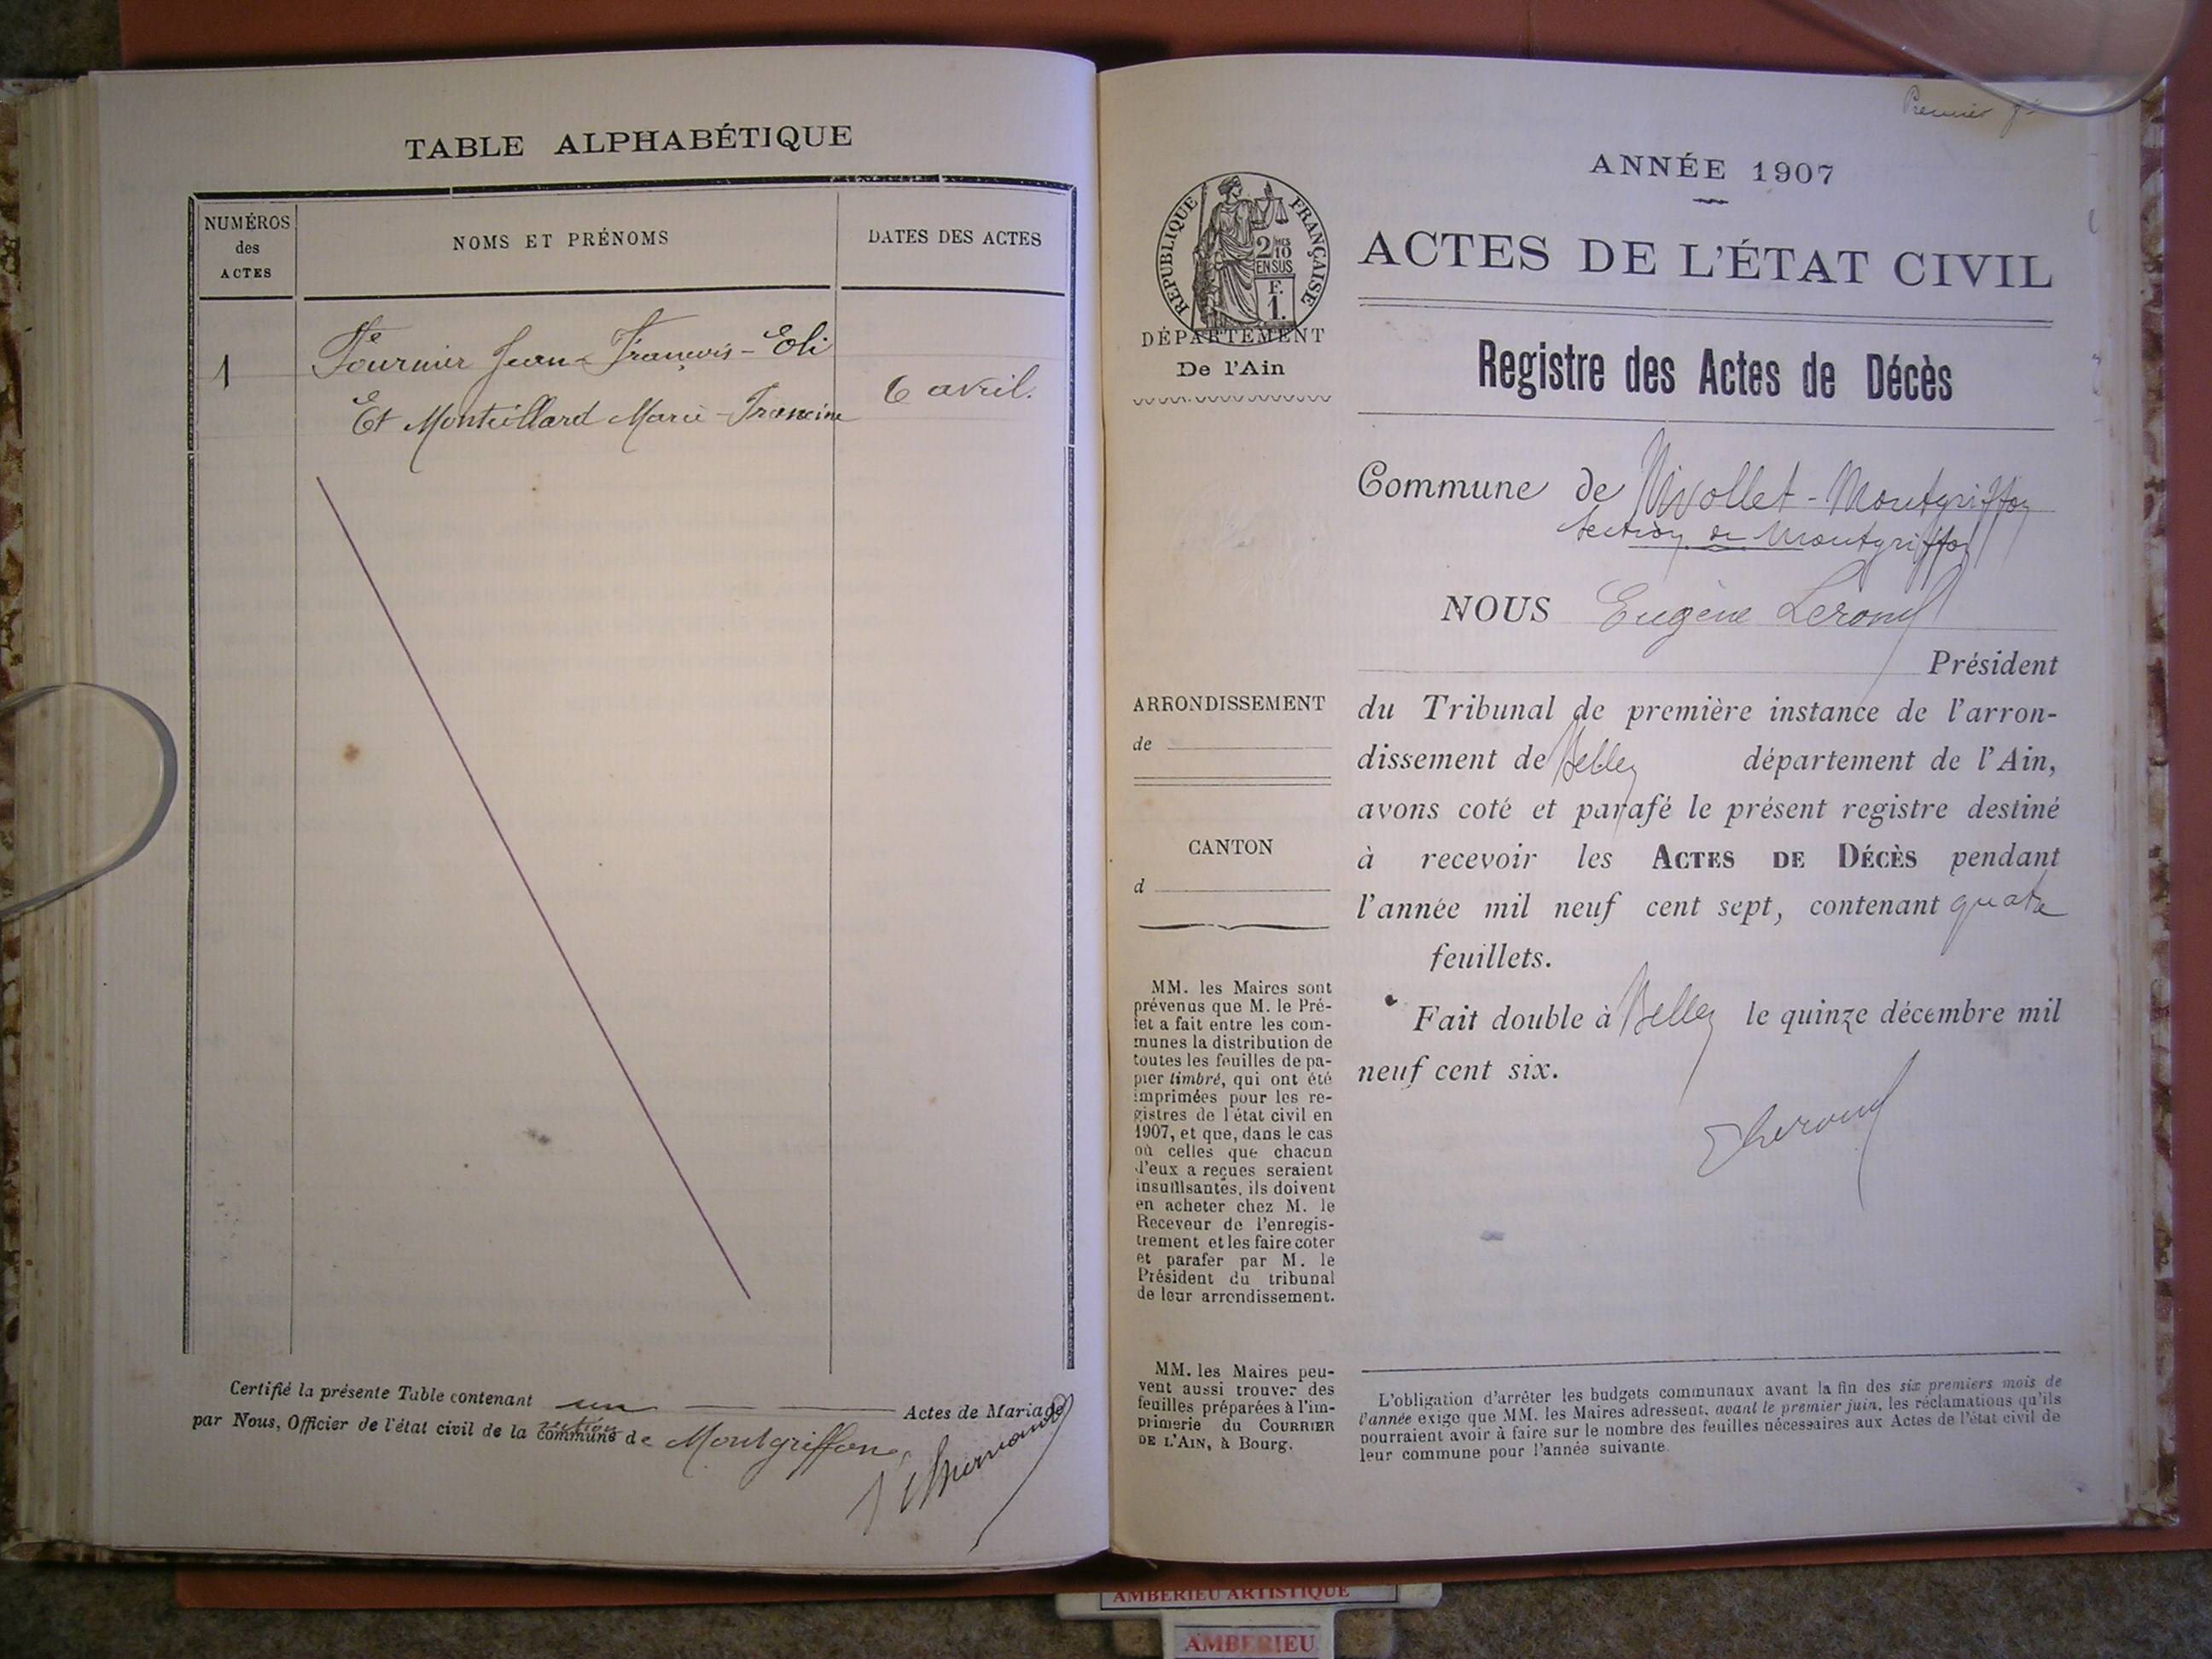 TABLE ALPHABÉTIQUE
NUMÉROS
des
ACTES
NOMS ET PRÉNOMS
DATES DES ACTES
1
Fournier Jean-François-Eli
Et Monteillard Marie-Francine
6 avril.
Certifié la présente Table contenant un Actes de Mariage
par Nous, Officier de l'état civil de la commune de Montgriffon
section
Premier
ANNÉE 1907
RÉPUBLIQUE FRANÇAISE
2/10 MES
EN SUS
F.
1.
DÉPARTEMENT
De l'Ain
ACTES DE L'ÉTAT CIVIL
Registre des Actes de Décès
Commune de Nivollet-Montgriffon
Section de Montgriffon
NOUS Eugène
Président
du Tribunal de première instance de l'arron-
dissement de Belley département de l'Ain,
avons coté et parafé le présent registre destiné
à recevoir les ACTES DE DÉCÈS pendant
l'année mil neuf cent sept, contenant quatre
feuillets.
Fait double à Belley le quinze décembre mil
neuf cent six.
ARRONDISSEMENT
de
CANTON
d
MM. les Maires sont
prévenus que M. le Pré-
fet a fait entre les com-
munes la distribution de
toutes les feuilles de pa-
pier timbré, qui ont été
imprimées pour les re-
gistres de l'état civil en
1907, et que, dans le cas
où celles que chacun
d'eux a reçues seraient
insuffisantes, ils doivent
en acheter chez M. le
Receveur de l'enregis-
trement et les faire coter
et parafer par M. le
Président du tribunal
de leur arrondissement.
MM. les Maires peu-
vent aussi trouver des
feuilles préparées à l'im-
primerie du COURRIER
DE L'AIN, à Bourg.
L'obligation d'arrêter les budgets communaux avant la fin des six premiers mois de
l'année exige que MM. les Maires adressent, avant le premier juin, les réclamations qu'ils
pourraient avoir à faire sur le nombre des feuilles nécessaires aux Actes de l'état civil de
leur commune pour l'année suivante.
AMBERIEU ARTISTIQUE
AMBERIEU